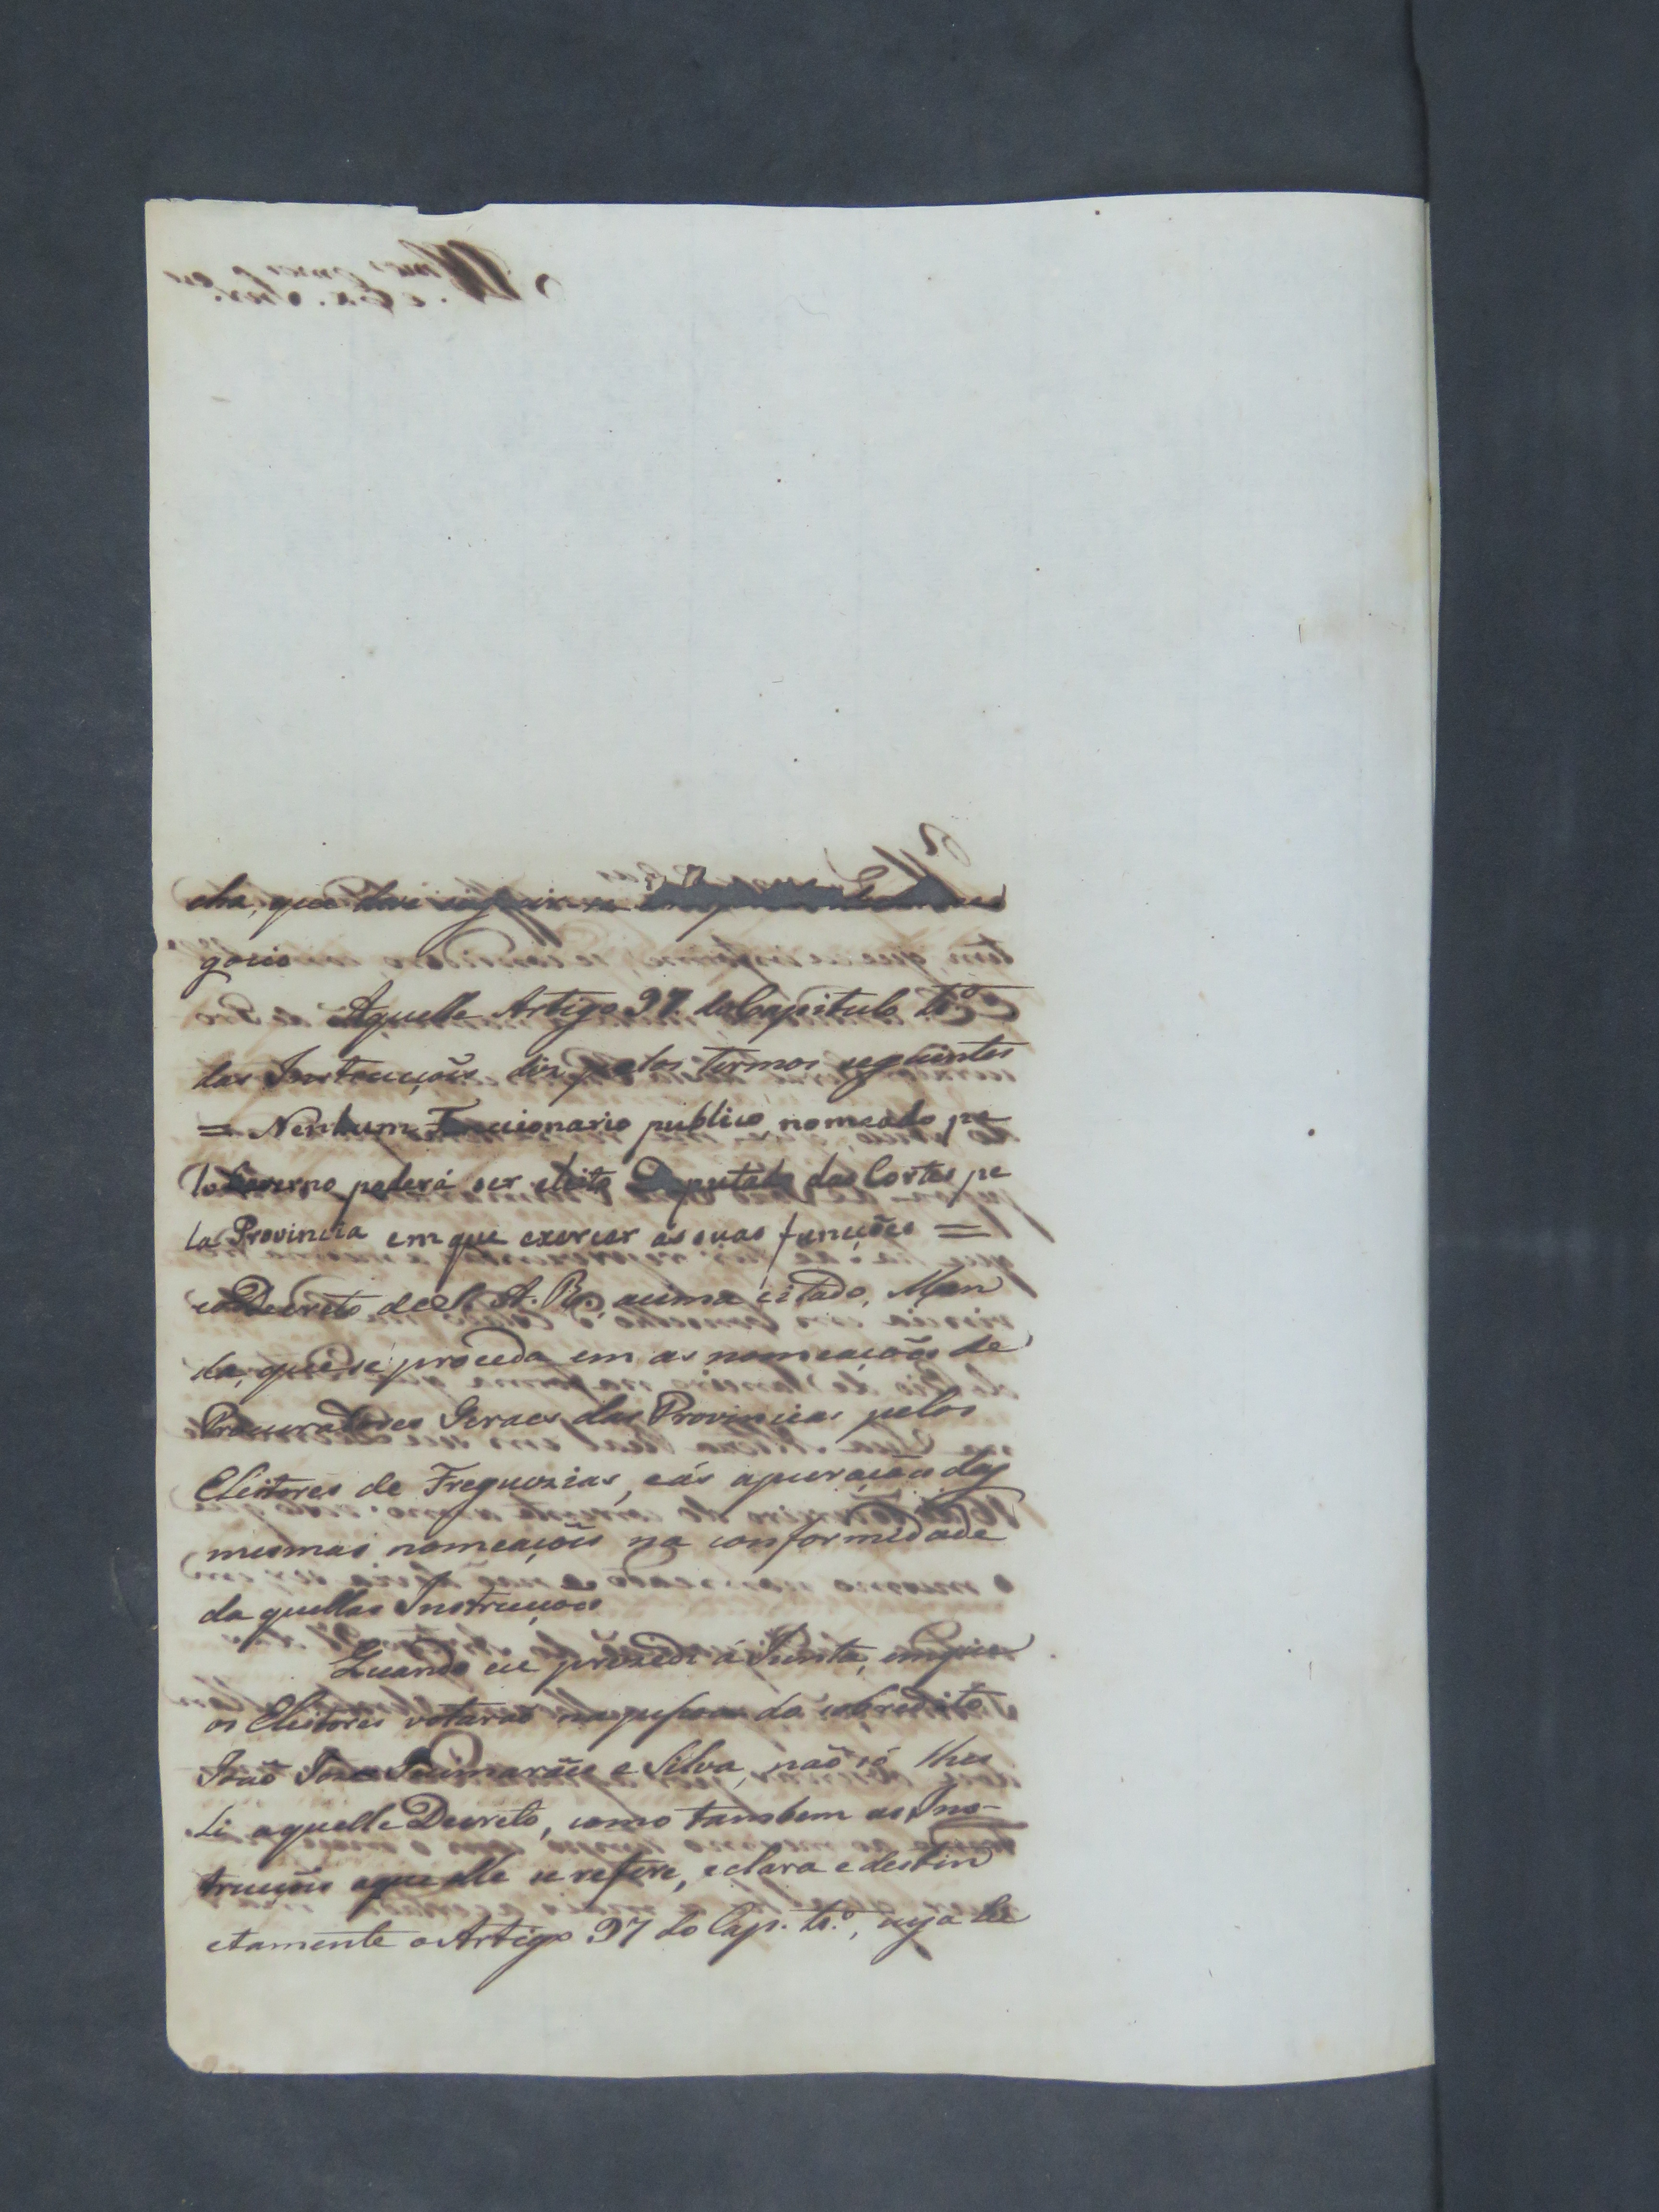 cha, que deve
gocio
Aquelle Artigo 97. do Capitulo 4º
das Instrucções diz pelos termos seguintes
= Nenhum Funcionario publico nomeado pe
lo Governo poderá ser eleito Deputado das Cortes pe
la Provincia em que exercer as suas funções =
eo Decreto de S. A. R., acima citado, Man
da, que se proceda em as nomeaçoẽs de
Procuradores Geraes das Provincias pelos
Eleitores de Freguezias, e ás apuraçoẽs das
mesmas nomeaçoẽs na conformidade
da quellas Instrucçoẽs
Quando eu procedi á Junta, emque
os Eleitores votaraõ na pessoa do sobredito
Joaõ Joze Guimarães e Silva, naõ só lhes
Li aquelle Decreto, como tambem as Ins-
trucçoẽs aque elle se refere, e clara e destin
ctamente o Artigo 97 do Cap. 4.º, cuja lei